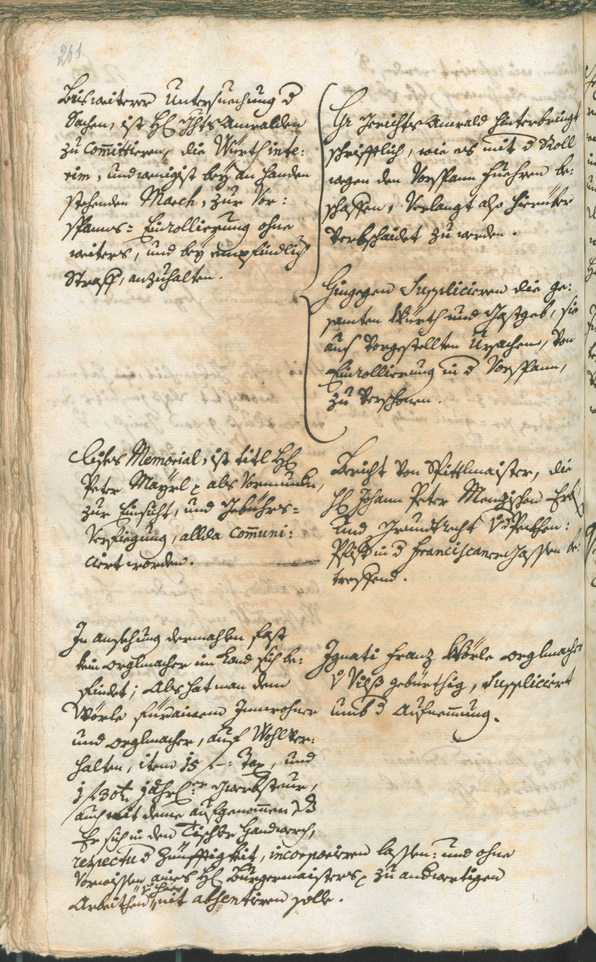 261
Bis weiterer Untersuechung d
Sachen, ist H Ghts Anwalden
zu Committieren, die Würth inte-
rim, und wenigst bey an handen
stehenden March, zur Vor-
spanns-Einrollierung ohne
weiters, und bey empfindlich
Straff, anzuhalten.
Hr Gerichts Anwald hinterbringt
schrifftlich, wie es mit d Roll
wegen den Vorspann fuehren be-
schaffen, Verlangt also hierüber
Verbschaidet zu werden.
Hingegen Supplicieren die ge-
samten Würth und Gastgeb, sie
aus Vorgestellten Ursachen, Von
Einrollierung in d Vorspann,
zu Verschonen.
Memorial, ist titl H
Peter Mayrl, als Vormunden,
zur Einsicht, und Gebührs-
Verfiegung, allda Communi-
ciert worden.
Bericht Von Spittlmaister, die
H Johann Peter Menzischen Erb
und Grundrecht
in d Franciscaner Gassen be-
treffend.
In ansehung dermahlen fast
kein orglmacher im Land sich be-
findet; Als hat man dem
Wörle für ainem Innwohner
und orglmacher, auf Wohlver-
halten, item 15 f Tax, und
1 f 30 x jährl Gwerbsteur,
auch mit deme aufgenommen, dß
Er sich in den Tischler Handwerch,
respectu d Zünfftigkeit, incorporieren lassen: und ohne
Vorwissen aines H Burgermaisters, zu andwertigen
Arbeithen sich nit absentieren solle.
Ignati Franz Wörle orglmacher
V Vilß gebürthig, Suppliciert
umb d Aufnemmung.